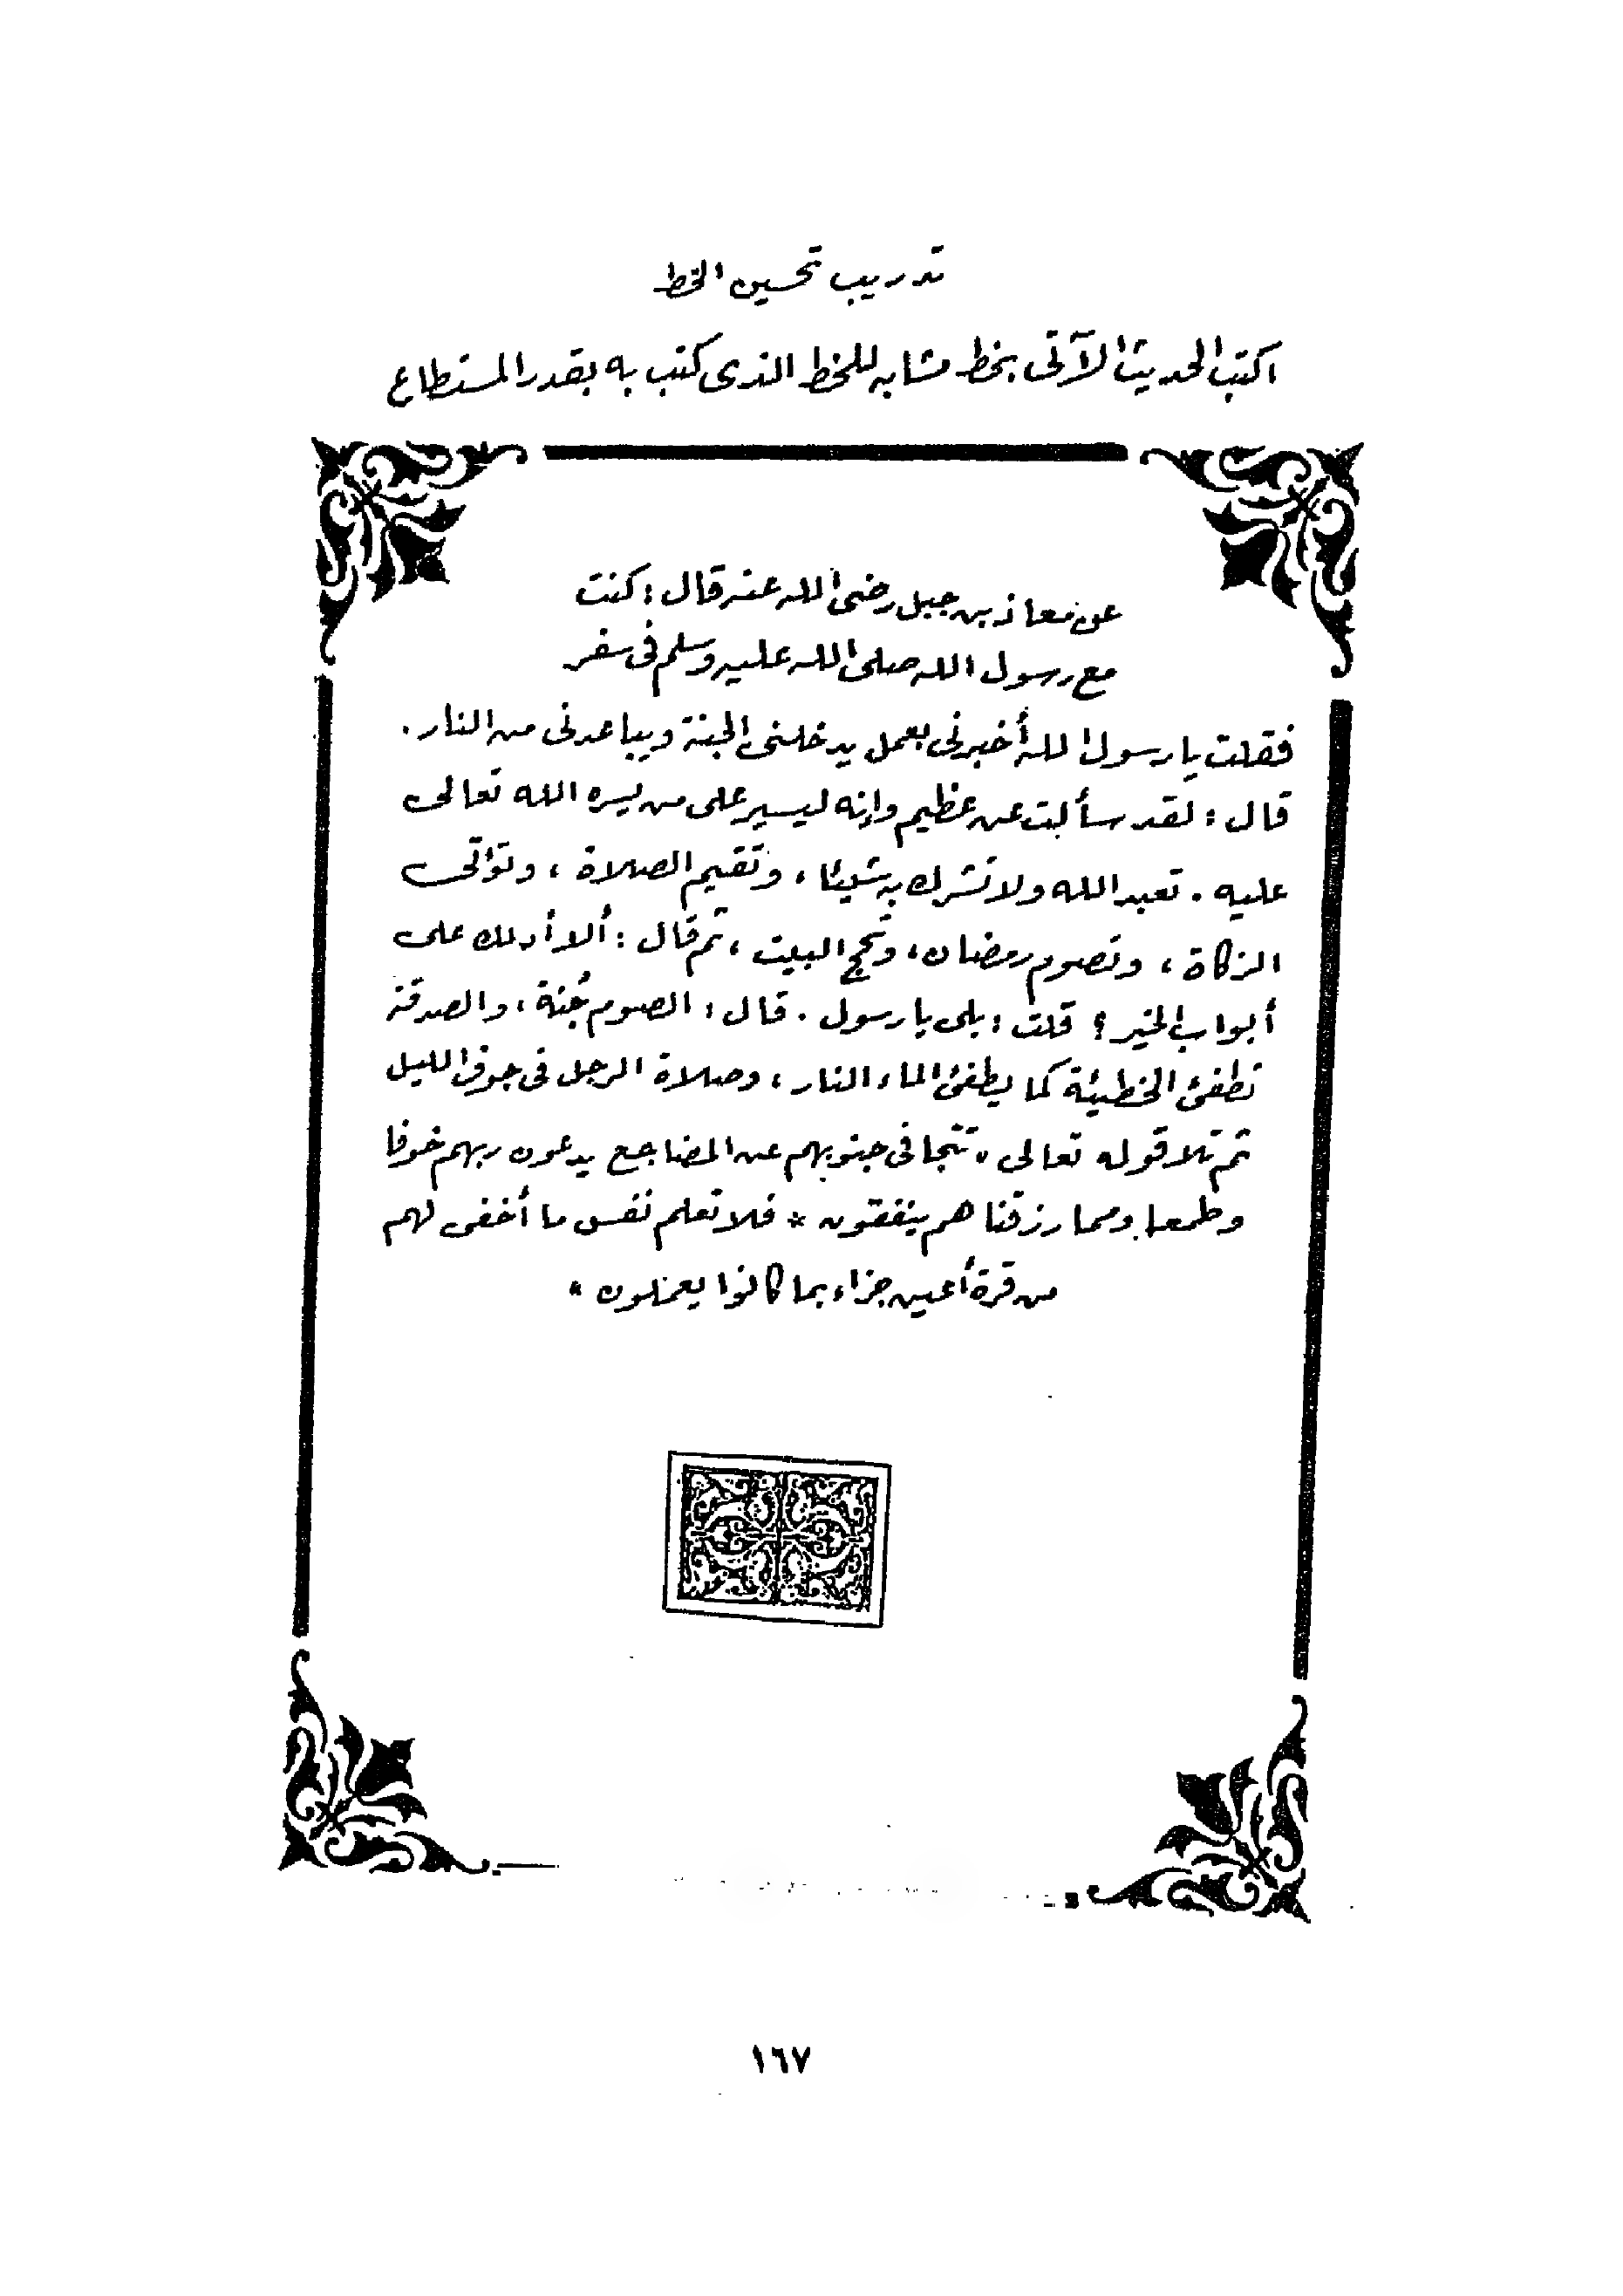 تدريب تحسين الخط
اكتب الحديث الآتى بخط مشابه للخط الذى كتب به بقدر المستطاع
عن معاذ بن جبل رضى الله عنه قال : كنت
مع رسول الله صلى الله عليه وسلم فى سفر
فقلت يا رسول الله أخبرنى بعمل يدخلنى الجنة ويباعدنى من النار .
قال : لقد سألت عن عظيم وإنه ليسير على من يسره الله تعالى
عليه . تعبد الله ولا تشرك به شيئا ، وتقيم الصلاة ، وتؤتى
الزكاة ، وتصوم رمضان ، وتحج البيت ، ثم قال : ألا أدلك على
أبواب الخير ؟ قلت : بلى يا رسول . قال : الصوم جُنة ، والصدقة
تطفئ الخطيئة كما يطفئ الماء النار ، وصلاة الرجل فى جوف الليل
ثم تلا قوله تعالى " تتجافى جنوبهم عن المضاجع يدعون ربهم خوفا
وطمعا ومما رزقنا هم ينفقون * فلا تعلم نفس ما أخفى لهم
من قرة أعين جزاء بما كانوا يعملون "
١٦٧